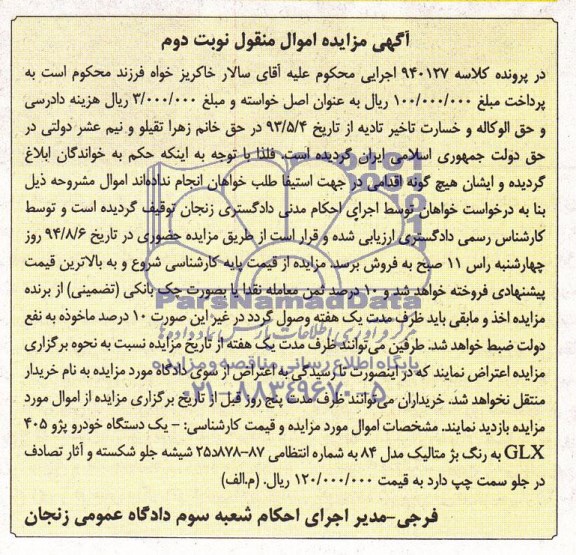 آگهی مزایده اموال منقول نوبت دوم
در پرونده کلاسه ۹۴۰۱۲۷ اجرایی محکوم علیه آقای سالار خاکریز خواه فرزند محکوم است به
پرداخت مبلغ ۱۰۰/۰۰۰/۰۰۰ ریال به عنوان اصل خواسته و مبلغ ۳/۰۰۰/۰۰۰ ریال هزینه دادرسی
و حق الوکاله و خسارت تاخیر تادیه از تاریخ ۹۳/۵/۴ در حق خانم زهرا تقیلو و نیم عشر دولتی در
حق دولت جمهوری اسلامی ایران گردیده است. فلذا با توجه به اینکه حکم به خواندگان ابلاغ
گردیده و ایشان هیچ گونه اقدامی در جهت استیفا طلب خواهان انجام نداده‌اند اموال مشروحه ذیل
بنا به درخواست خواهان توسط اجرای احکام مدنی دادگستری زنجان توقیف گردیده است و توسط
کارشناس رسمی دادگستری ارزیابی شده و قرار است از طریق مزایده حضوری در تاریخ ۹۴/۸/۶ روز
چهارشنبه راس ۱۱ صبح به فروش برسد. مزایده از قیمت پایه کارشناسی شروع و به بالاترین قیمت
پیشنهادی فروخته خواهد شد و ۱۰ درصد ثمن معامله نقدا یا بصورت چک بانکی (تضمینی) از برنده
مزایده اخذ و مابقی باید ظرف مدت یک هفته وصول گردد در غیر این صورت ۱۰ درصد ماخوذه به نفع
دولت ضبط خواهد شد. طرفین می‌توانند ظرف مدت یک هفته از تاریخ مزایده نسبت به نحوه برگزاری
مزایده اعتراض نمایند که در اینصورت تا رسیدگی به اعتراض از سوی دادگاه مورد مزایده به نام خریدار
منتقل نخواهد شد. خریداران می‌توانند ظرف مدت پنج روز قبل از تاریخ برگزاری مزایده از اموال مورد
مزایده بازدید نمایند. مشخصات اموال مورد مزایده و قیمت کارشناسی: – یک دستگاه خودرو پژو ۴۰۵
GLX به رنگ بژ متالیک مدل ۸۴ به شماره انتظامی ۸۷–۸۷۸د۲۵ شیشه جلو شکسته و آثار تصادف
در جلو سمت چپ دارد به قیمت ۱۲۰/۰۰۰/۰۰۰ ریال. (م.الف)
فرجی–مدیر اجرای احکام شعبه سوم دادگاه عمومی زنجان
ParsNamadData
پایگاه اطلاع رسانی مناقصه و مزایده
۰۲۱-۸۸۳۴۹۶۷۰-۵